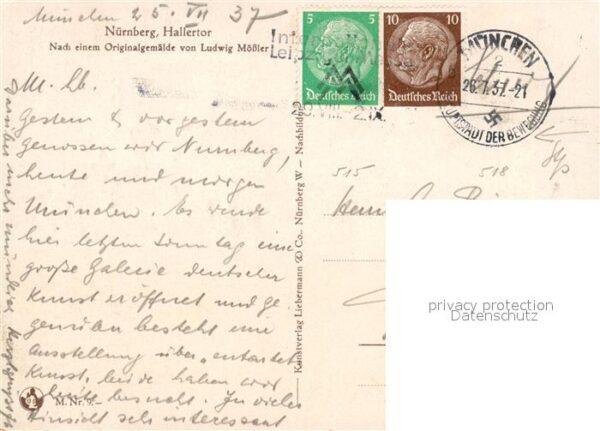 München 25. VII 37
Nürnberg, Hallertor
Nach einem Originalgemälde von Ludwig Mößler
M. Lb.
Gestern & vorgestern
genossen wir Nürnberg,
heute und morgen
München. Es wurde
hier letzten Sonntag eine
große Galerie deutscher
Kunst eröffnet und ge-
genüber besteht eine
Ausstellung über „entartete
Kunst, beide haben wir
heute besucht. In vieler
Hinsicht sehr interessant
Darüber mehr mündlich
M. Nr. 9.—
Kunstverlag Liebermann & Co., Nürnberg W — Nachbildung
5 5
Deutsches Reich
10 10
Deutsches Reich
Leipz
29.VIII.-2.IX.
MÜNCHEN
2
26.7.37.-21
HAUPTSTADT DER BEWEGUNG
515
518
Herrn
privacy protection
Datenschutz